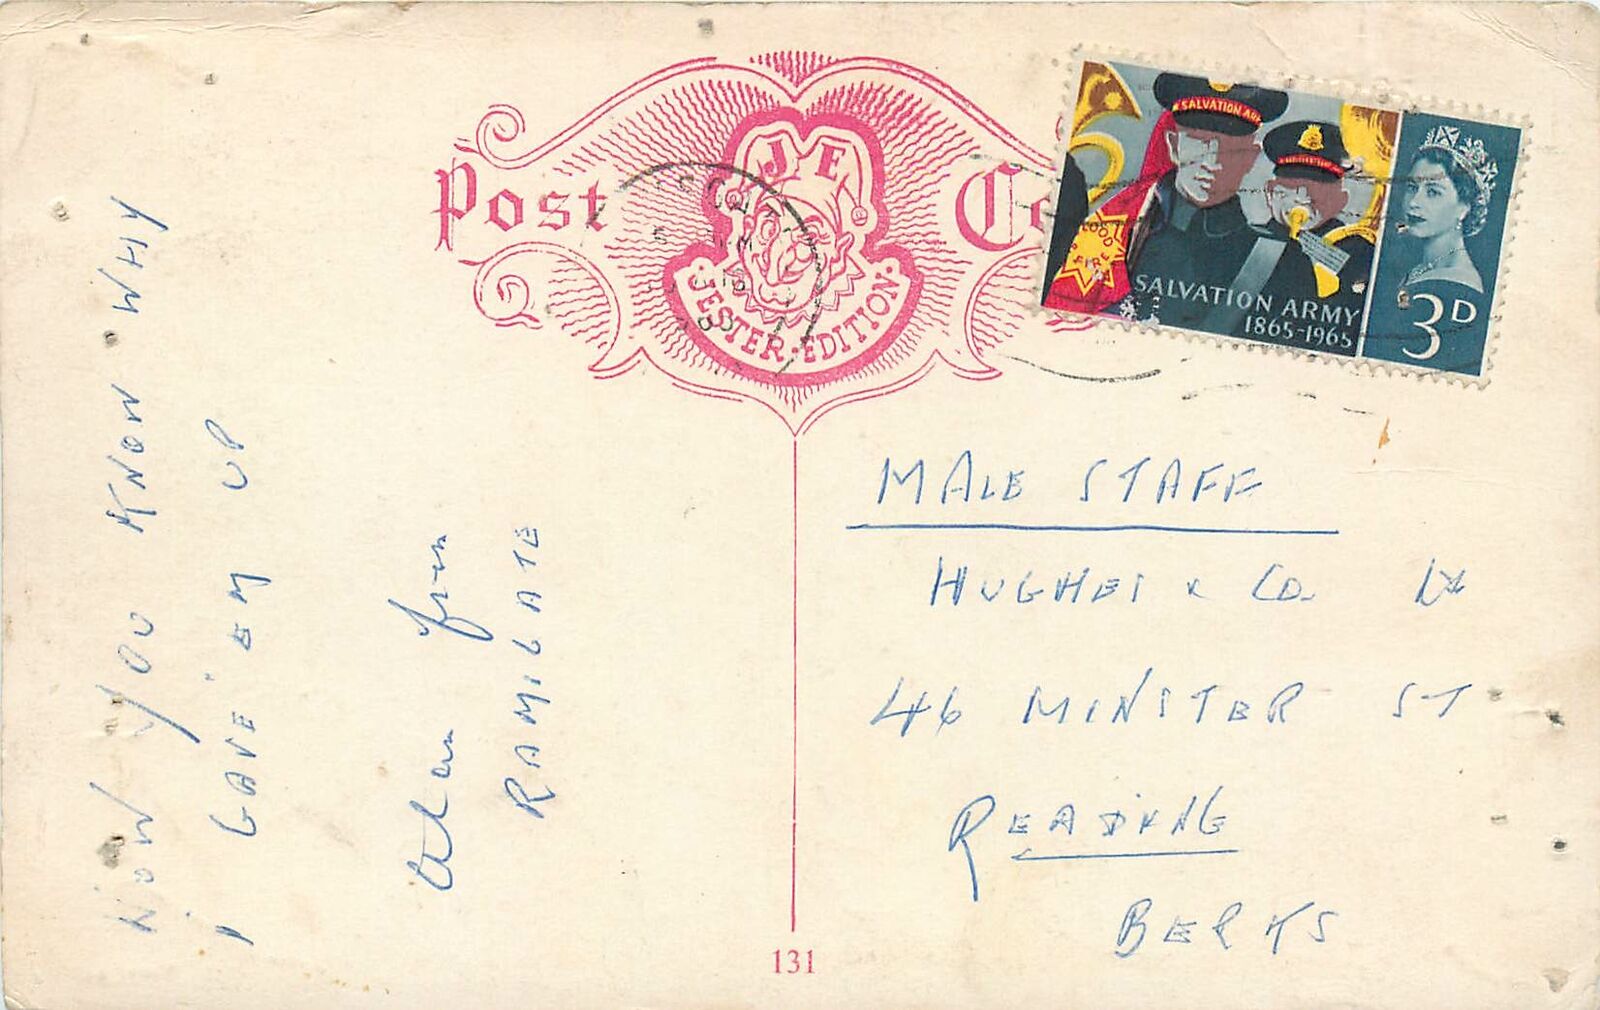 Post
J E
JESTER · EDITION
SALVATION ARMY
BLOOD & FIRE
SALVATION ARMY
1865-1965
3D
NOW YOU KNOW WHY
I GAVE 'EM UP
Alan from
RAMSGATE
MALE STAFF
HUGHES & CO. Ld
46 MINSTER ST
READING
BERKS
131